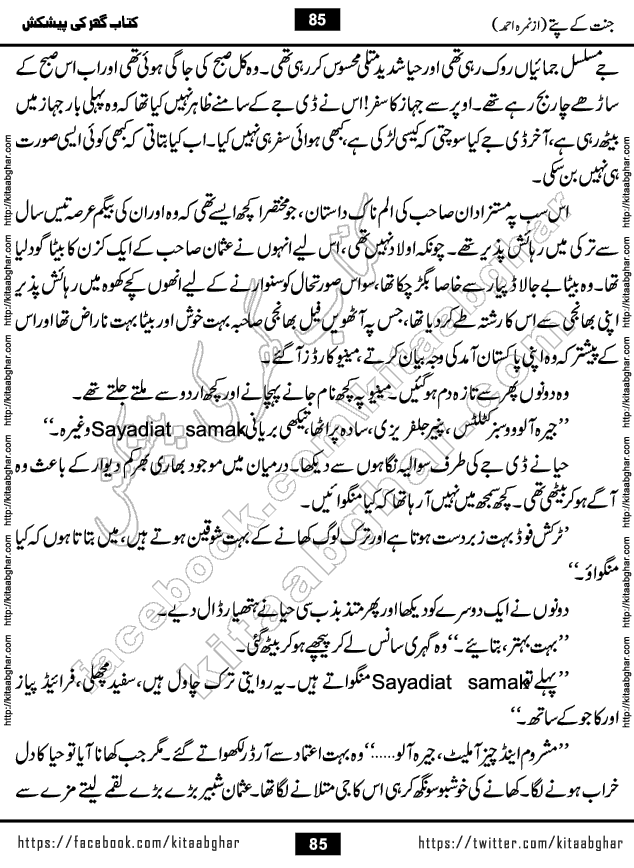 جنت کے پتے (از نمرہ احمد)
85
کتاب گھر کی پیشکش
جے مسلسل جمائیاں روک رہی تھی اور حیا شدید متلی محسوس کر رہی تھی۔ وہ کل صبح کی جاگی ہوئی تھی اور اب اس صبح کے
ساڑھے چار بج رہے تھے۔ اوپر سے جہاز کا سفر! اس نے ڈی جے کے سامنے ظاہر نہیں کیا تھا کہ وہ پہلی بار جہاز میں
بیٹھ رہی ہے، آخر ڈی جے کیا سوچتی کہ کیسی لڑکی ہے، کبھی ہوائی سفر ہی نہیں کیا۔ اب کیا بتاتی کہ کبھی کوئی ایسی صورت
ہی نہیں بن سکی۔
اس سب پہ مستزاد ان صاحب کی الم ناک داستان، جو مختصراً کچھ ایسے تھی کہ وہ اور ان کی بیگم عرصہ تیس سال
سے ترکی میں رہائش پذیر تھے۔ چونکہ اولاد نہیں تھی، اس لیے انہوں نے عثمان صاحب کے ایک کزن کا بیٹا گود لیا
تھا۔ وہ بیٹا بے جا لاڈ پیار سے خاصا بگڑ چکا تھا، سو اس صورتحال کو سنوارنے کے لیے انھوں کچے کھوہ میں رہائش پذیر
اپنی بھانجی سے اس کا رشتہ طے کر دیا تھا، جس پہ آٹھویں فیل بھانجی صاحبہ بہت خوش اور بیٹا بہت ناراض تھا اور اس
کے پیشتر کہ وہ اپنی پاکستان آمد کی وجہ بیان کرتے، مینیو کارڈز آ گئے۔
وہ دونوں پھر سے تازہ دم ہو گئیں۔ مینیو پہ کچھ نام جانے پہچانے اور کچھ اردو سے ملتے جلتے تھے۔
’’جیرہ آلو ووسبز کٹلٹس، پنیر جلفریزی، سادہ پراٹھا، تیکھی بریانی Sayadiat samak وغیرہ۔‘‘
حیا نے ڈی جے کی طرف سوالیہ نگاہوں سے دیکھا۔ درمیان میں موجود بھاری بھرکم دیوار کے باعث وہ
آگے ہو کر بیٹھی تھی۔ کچھ سمجھ میں نہیں آ رہا تھا کہ کیا منگوائیں۔
’ٹرکش فوڈ بہت زبردست ہوتا ہے اور ترک لوگ کھانے کے بہت شوقین ہوتے ہیں، میں بتاتا ہوں کہ کیا
منگواؤ۔‘‘
دونوں نے ایک دوسرے کو دیکھا اور پھر متذبذب سی حیا نے ہتھیار ڈال دیے۔
’’بہت بہتر، بتائیے۔‘‘ وہ گہری سانس لے کر پیچھے ہو کر بیٹھ گئی۔
’’پہلے تو Sayadiat samak منگواتے ہیں۔ یہ روایتی ترک چاول ہیں، سفید مچھلی، فرائیڈ پیاز
اور کاجو کے ساتھ۔‘‘
’’مشروم اینڈ چیز آملیٹ، جیرہ آلو......‘‘ وہ بہت اعتماد سے آرڈر لکھواتے گئے۔ مگر جب کھانا آیا تو حیا کا دل
خراب ہونے لگا۔ کھانے کی خوشبو سونگھ کر ہی اس کا جی متلانے لگا تھا۔ عثمان شبیر بڑے بڑے لقمے لیتے مزے سے
http://kitaabghar.com http://kitaabghar.com http://kitaabghar.com http://kitaabghar.com http://kitaabghar.com http://kitaabghar.com
http://kitaabghar.com http://kitaabghar.com http://kitaabghar.com http://kitaabghar.com http://kitaabghar.com http://kitaabghar.com
کتاب گھر کی پیشکش
facebook.com/kitaabghar
kitaabghar.com
https://facebook.com/kitaabghar
85
https://twitter.com/kitaabghar